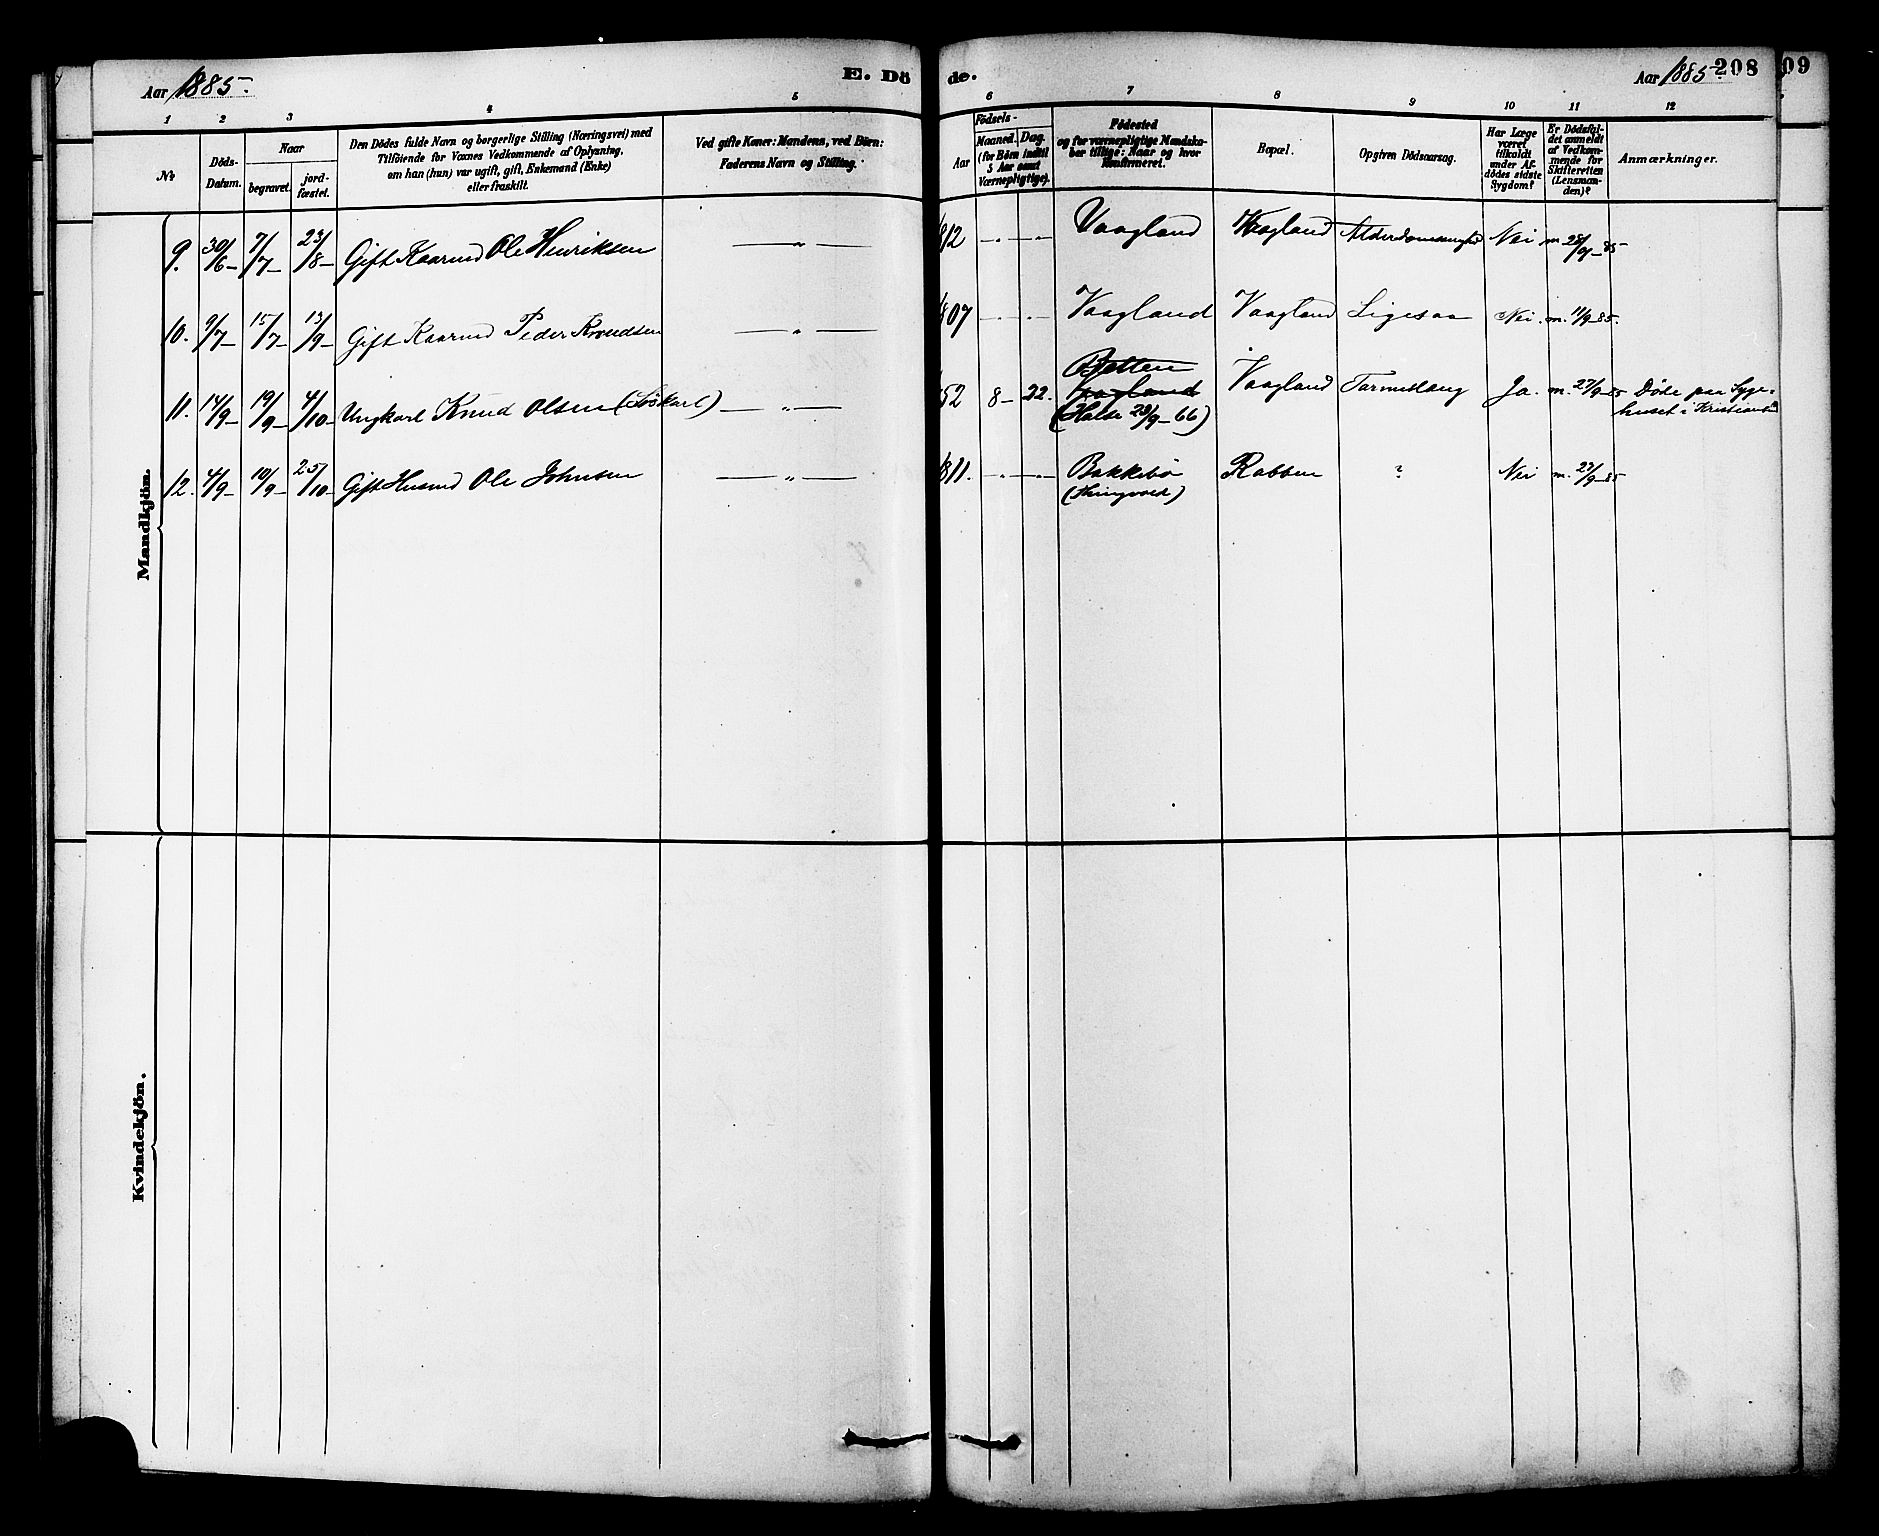 Aar 1885.
E. Dö
de.
Aar 1885
208
09
1 2 3 4 5 6 7 8 9 10 11 12
No
Döds-
Datum.
Naar
begravet.
jord-
fæstet.
Den Dödes fulde Navn og borgerlige Stilling (Næringsvei) med
Tilföiende for Voxnes Vedkommende af Oplysning,
om han (hun) var ugift, gift, Enkemand (Enke)
eller fraskilt.
Ved gifte Koner: Mandens, ved Börn:
Faderens Navn og Stilling.
Födsels-
Aar
Maaned. Dag.
(for Börn indtil
5 Aar samt
Værnepligtige).
Födested
og for værnepligtige Mandska-
ber tillige: Naar og hvor
konfirmeret.
Bopæl.
Opgiven Dödsaarsag.
Har Læge
været
tilkaldt
under Af-
dödes sidste
Sygdom?
Er Dödsfal-
det anmeldt
af Vedkom-
mende for
Skifteretten
(Lensman-
den)?
Anmærkninger.
Mandkjön.
9. 30/6 – 7/7 – 23/8 – Gift Kaarmd Ole Henriksen — „ — 1812 – „ – „ – Vaagland Vaagland Alderdomssvaghed Nei m. 28/9–85
10. 9/7 – 15/7 – 13/9 – Gift Kaarmd Peder Knudsen — „ — 1807 – „ – „ – Vaagland Vaagland Ligesaa Nei. m. 11/9–85.
Betten
11. 14/9 – 19/9 – 4/10 – Ungkarl Knud Olsen (Löskarl) — „ — 52 8 – 22. Vaagland Vaagland Tarmeslaug Ja. m. 27/9–85 Döde paa Syge-
(Halse 23/9–66) huset i Kristiansd
12. 4/9 – 10/9 – 25/10 – Gift Husmd Ole Johnsen — „ — 1811. – „ – „ – Bakkebö Rabben ? Nei m. 23/9–85
(Thingvold)
Kvindekjön.